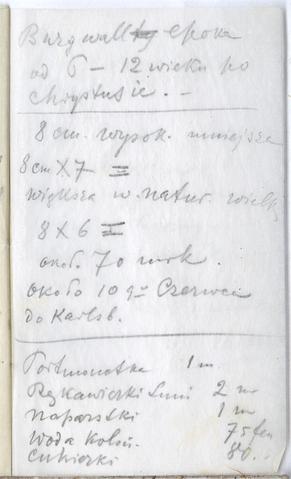 Burgwally epoka
od 6 – 12 wieku po
Chrystusie. –
8 cm. wysok. mniejsza
8 cm X 7 =
większa w natur. wielk
8 X 6 =
okoł. 70 mrk.
około 10go Czerwca
do Karlsb.
Portmonetka 1 m
Rękawiczki 2 m
naparstki 1 m
Woda koloń. 75 fen
Cukierki 80. –